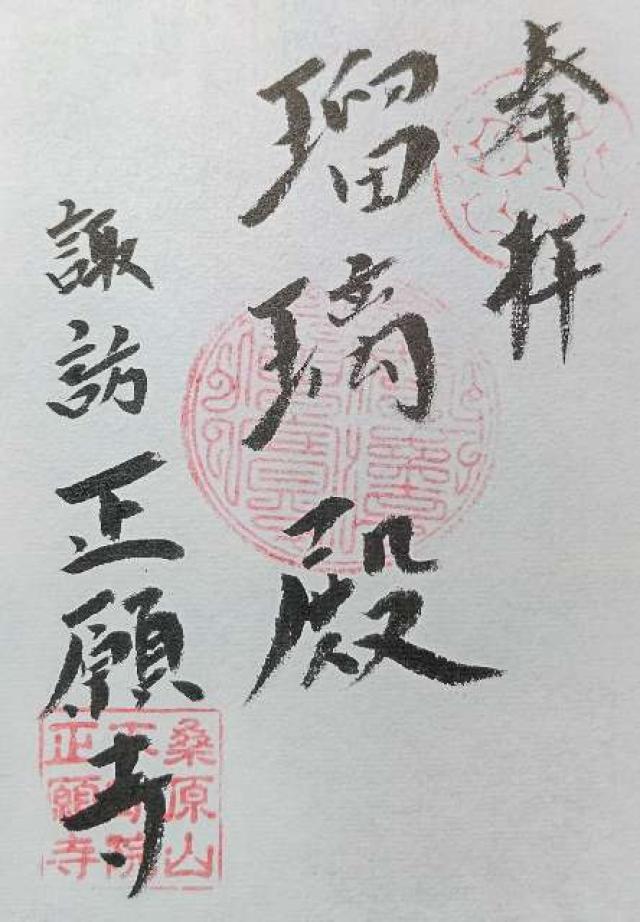 奉拝
瑠璃殿
諏訪正願寺
桑原山
正願寺